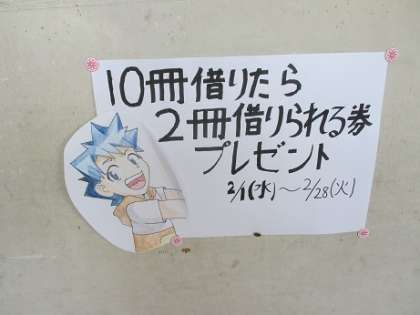 10冊借りたら
2冊借りられる券
プレゼント
2/1(水)～2/28(火)